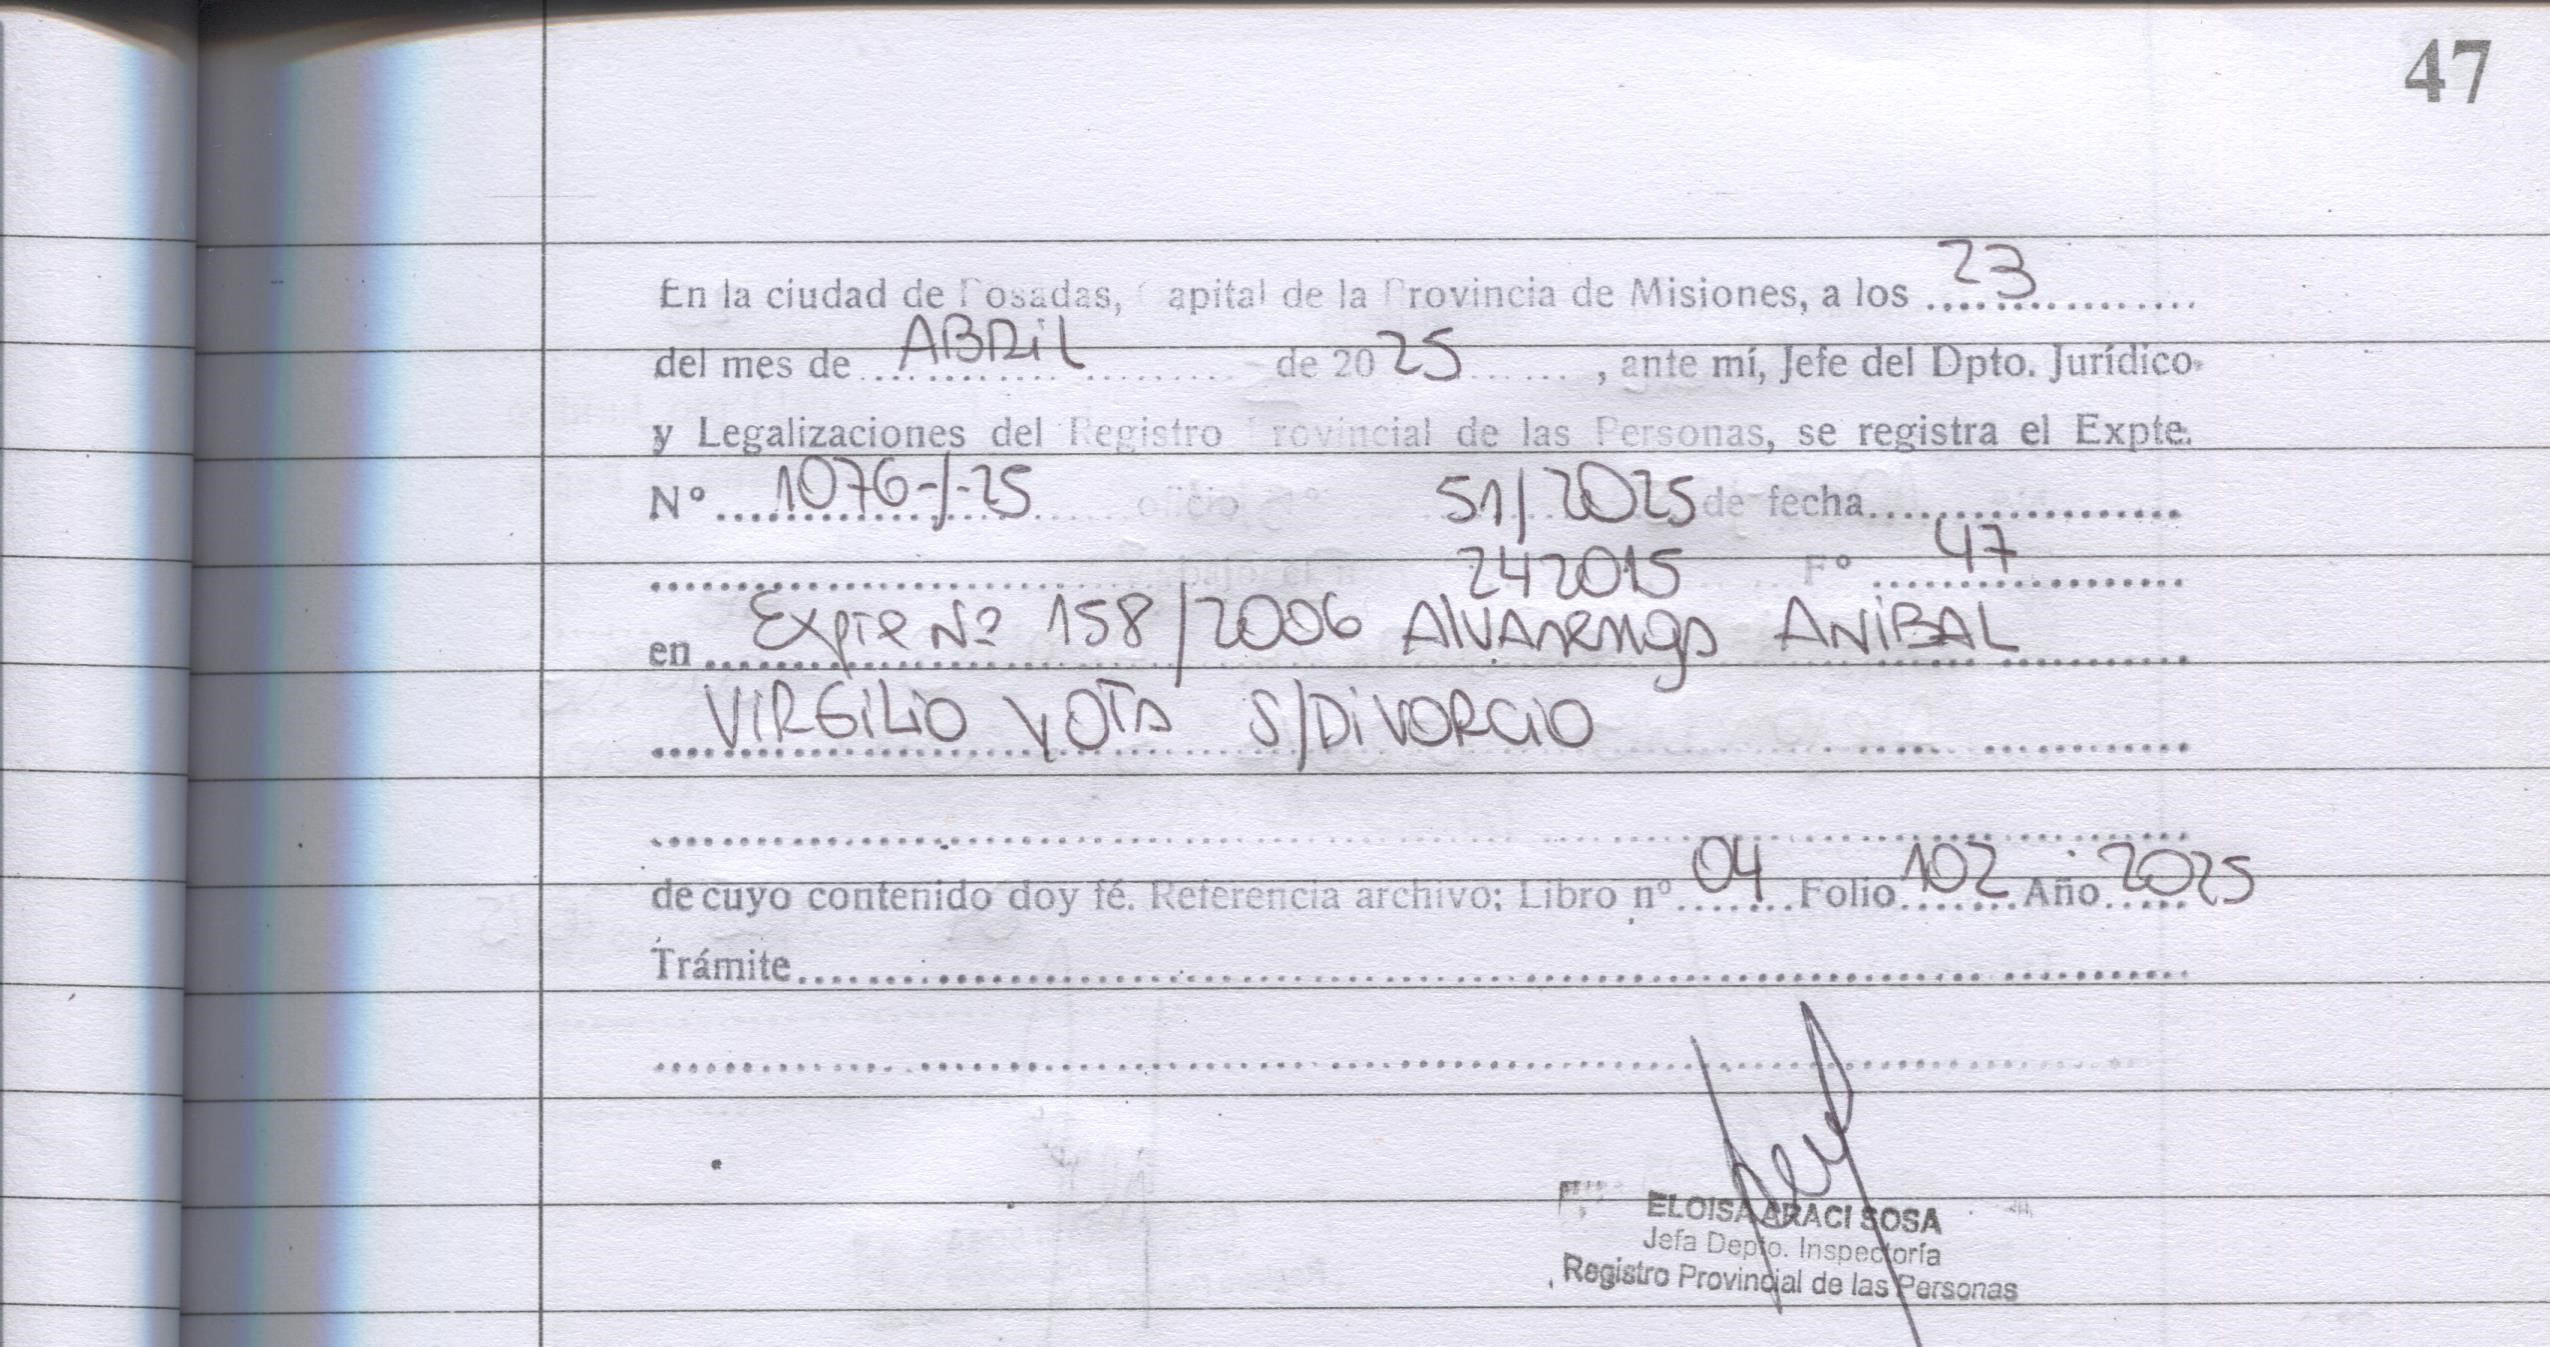 47
En la ciudad de Posadas, Capital de la Provincia de Misiones, a los 23
del mes de ABRIL de 2025, ante mí, Jefe del Dpto. Jurídico
y Legalizaciones del Registro Provincial de las Personas, se registra el Expte.
Nº 1076-/-25 oficio Nº 51/2025 de fecha
bajo el nº 242015 Fº 47
en Expte Nº 158/2006 Alvarenga ANIBAL
VIRGILIO Y OTA S/DIVORCIO
de cuyo contenido doy fé. Referencia archivo; Libro nº 04 Folio 102 Año 2025
Trámite
ELOISA ARACI SOSA
Jefa Depto. Inspectoría
Registro Provincial de las Personas